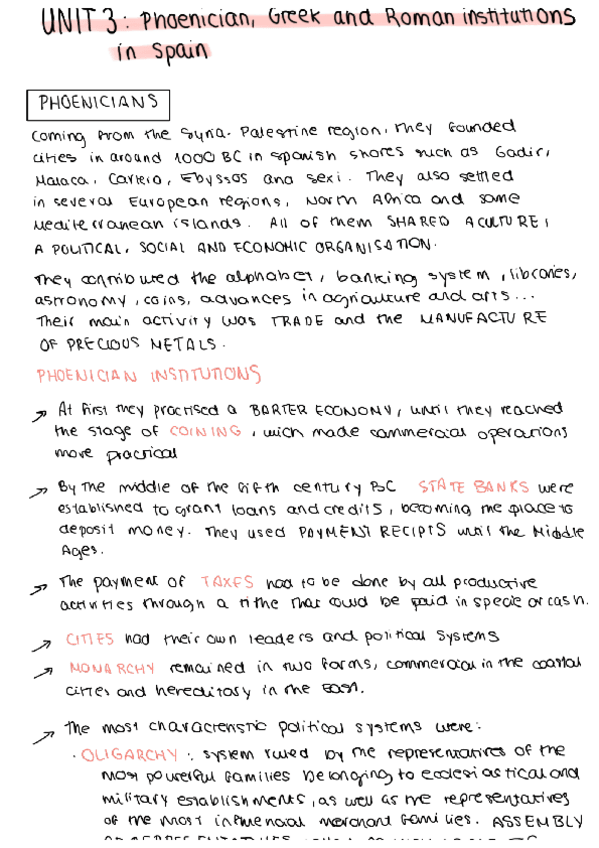 UNIT 3: Phoenician, Greek and Roman institutions
in Spain
PHOENICIANS
Coming from the Syria-Palestine region, they founded
cities in around 1000 BC in Spanish shores such as Gadir,
Malaca, Carteia, Ebyssos and Sexi. They also settled
in several European regions, North Africa and some
Mediterranean islands. All of them SHARED A CULTURE,
A POLITICAL, SOCIAL AND ECONOMIC ORGANISATION.
They contributed the alphabet, banking system, libraries,
astronomy, coins, advances in agriculture and arts...
Their main activity was TRADE and the MANUFACTURE
OF PRECIOUS METALS.
PHOENICIAN INSTITUTIONS
→ At first they practised a BARTER ECONOMY, until they reached
the stage of COINING, wich made commercial operations
more practical
→ By the middle of the fifth century BC STATE BANKS were
established to grant loans and credits, becoming the place to
deposit money. They used PAYMENT RECIPTS until the Middle
Ages.
→ The payment of TAXES had to be done by all productive
activities through a tithe that could be paid in specie or cash.
→ CITIES had their own leaders and political systems
→ MONARCHY remained in two forms, commercial in the coastal
cities and hereditary in the East.
→ The most characteristic political systems were:
· OLIGARCHY: system ruled by the representatives of the
most powerful families belonging to ecclesiastical and
military establishments, as well as the representatives
of the most influencial merchant families. ASSEMBLY